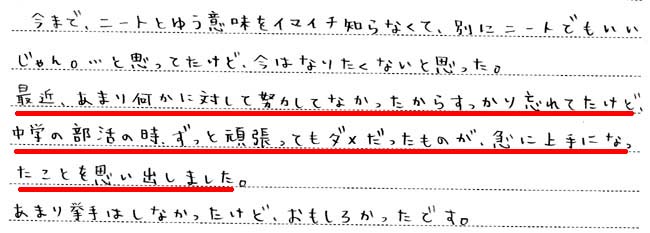 今まで、ニートとゆう意味をイマイチ知らなくて、別にニートでもいい
じゃん。…と思ってたけど、今はなりたくないと思った。
最近、あまり何かに対して努力してなかったからすっかり忘れてたけど、
中学の部活の時、ずっと頑張ってもダメだったものが、急に上手になっ
たことを思い出しました。
あまり挙手はしなかったけど、おもしろかったです。